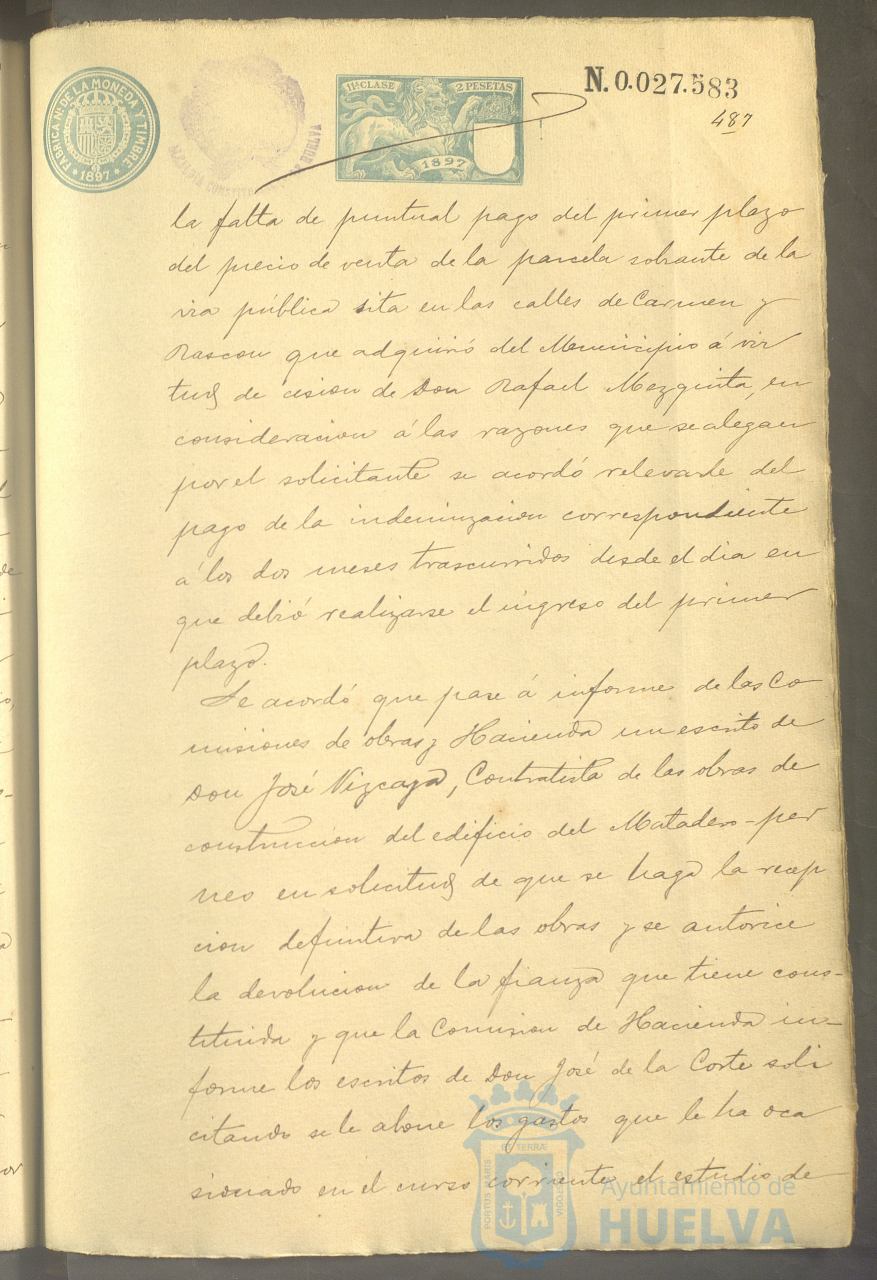 FABRICA Nl. DE LA MONEDA Y TIMBRE
* 1897 *
ALCALDIA CONSTITU HUELVA
11ª CLASE 2 PESETAS
1897
N.0.027.583
487
la falta de puntual pago del primer plazo
del precio de venta de la parcela sobrante de la
via pública sita en las calles de Carmen y
Rascon que adquirió del Municipio á vir
tud de cesion de Don Rafael Mezquita, en
consideracion á las razones que se alegan
por el solicitante se acordó relevarle del
pago de la indemnizacion correspondiente
á los dos meses trascurridos desde el dia en
que debió realizarse el ingreso del primer
plazo.
Se acordó que pase á informe de las Co
misiones de obras y Hacienda un escrito de
Don José Vizcaya, Contratista de las obras de
construccion del edificio del Matadero-per
neo en solicitud de que se haga la recep
cion definitiva de las obras y se autorice
la devolucion de la fianza que tiene cons-
tituida y que la Comision de Hacienda in-
forme los escritos de Don José de la Corte soli
citando se le abone los gastos que le ha oca
sionado en el curso corriente el estudio de
PORTUS MARIS ET TERRÆ CUSTODIA
Ayuntamiento de
HUELVA